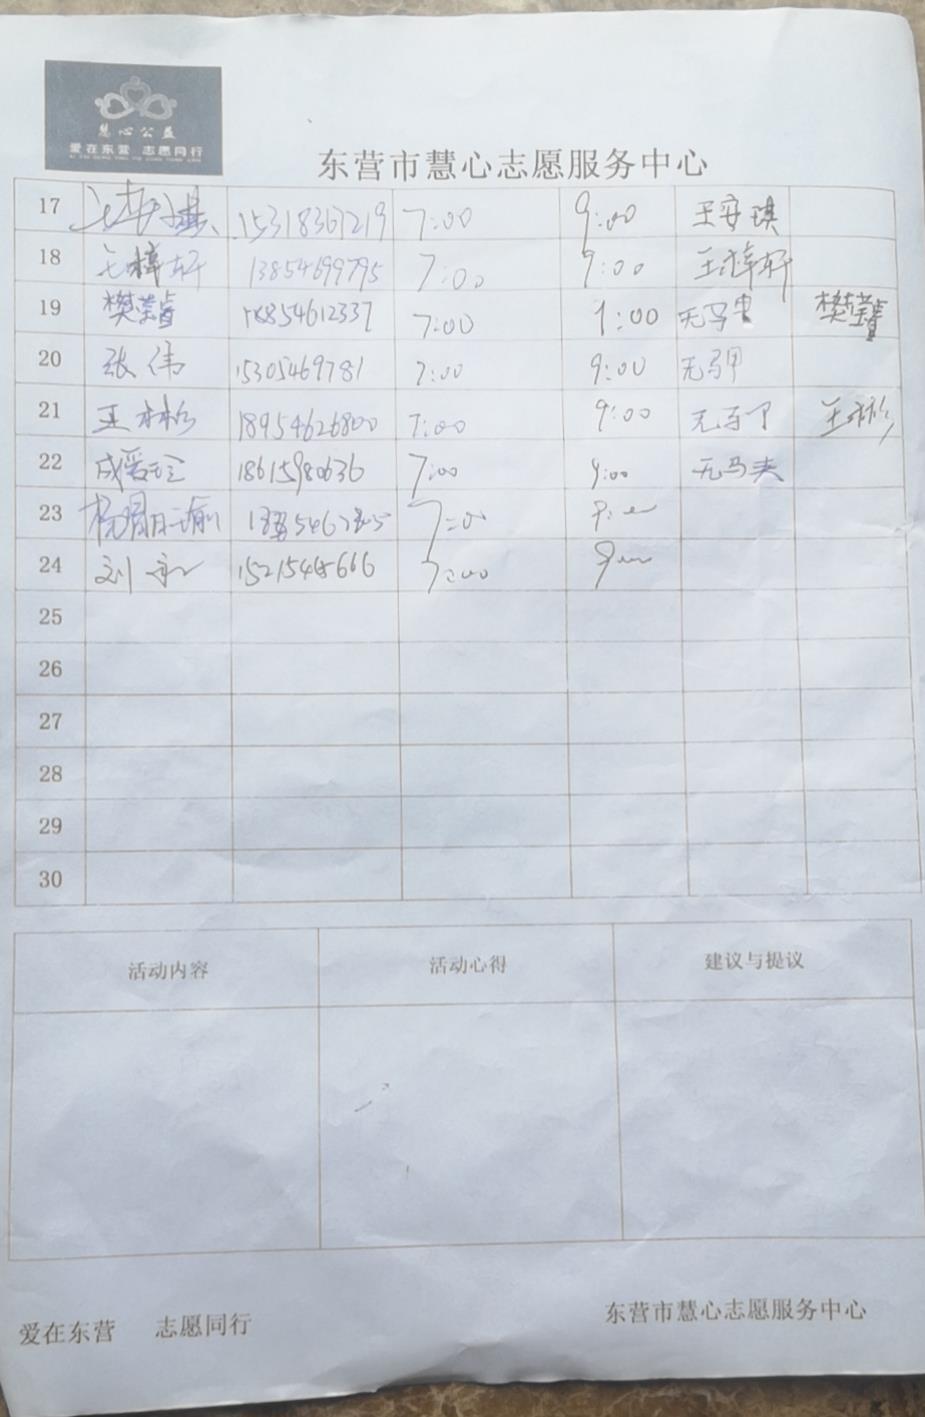 慧心公益
爱在东营 志愿同行
东营市慧心志愿服务中心
17 15318367219 7:00 9:00 王安琪
18 王梓轩 13854699795 7:00 9:00 王梓轩
19 樊莹睿 18854612337 7:00 9:00 无马甲 樊莹睿
20 张伟 15305469781 7:00 9:00 无马甲
21 王 18954626800 7:00 9:00 无马甲 王
22 成爱 18615980636 7:00 9:00 无马夹
23 杨 7:00 9:00
24 刘 7:00 9:00
25
26
27
28
29
30
活动内容 活动心得 建议与提议
爱在东营 志愿同行 东营市慧心志愿服务中心